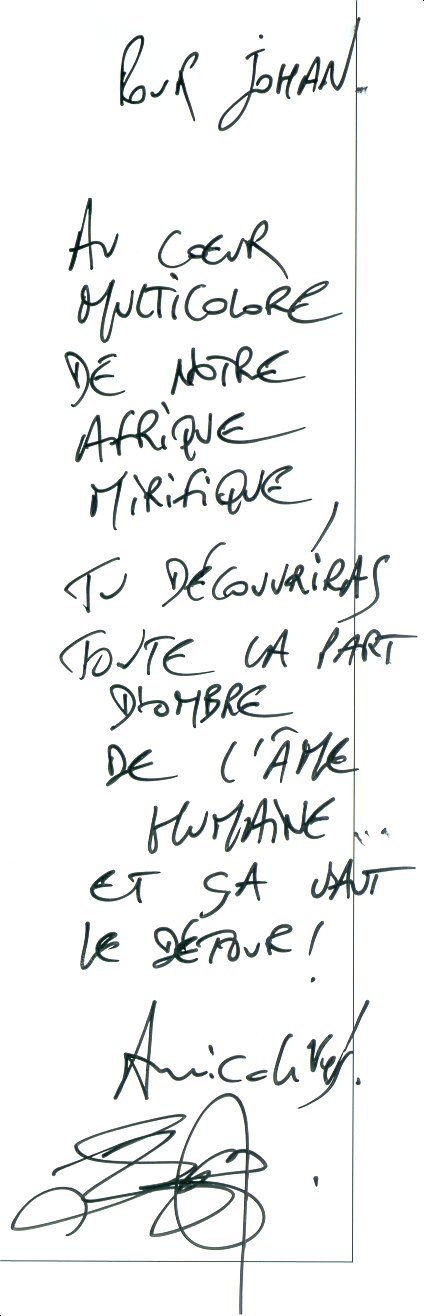 Pour Johan...
Au cœur
multicolore
de notre
Afrique
mirifique,
tu découvriras
toute la part
d'ombre
de l'âme
humaine...
et ça vaut
le détour !